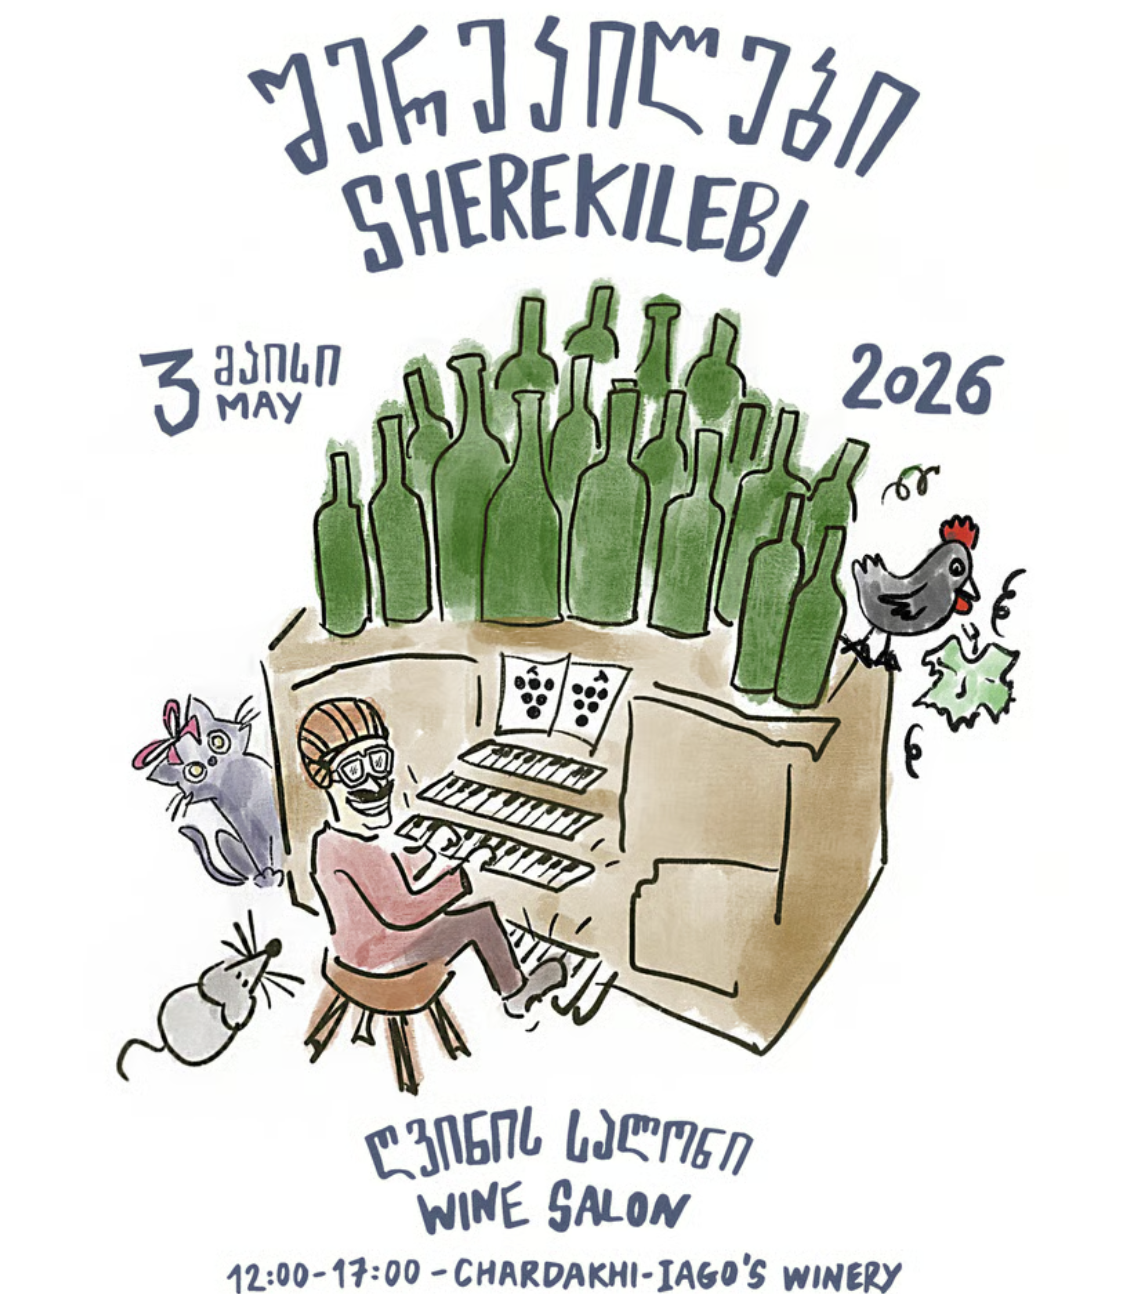 შერეკილები
SHEREKILEBI
3 მაისი
MAY
2026
ღვინის სალონი
WINE SALON
12:00-17:00 - CHARDAKHI-IAGO'S WINERY